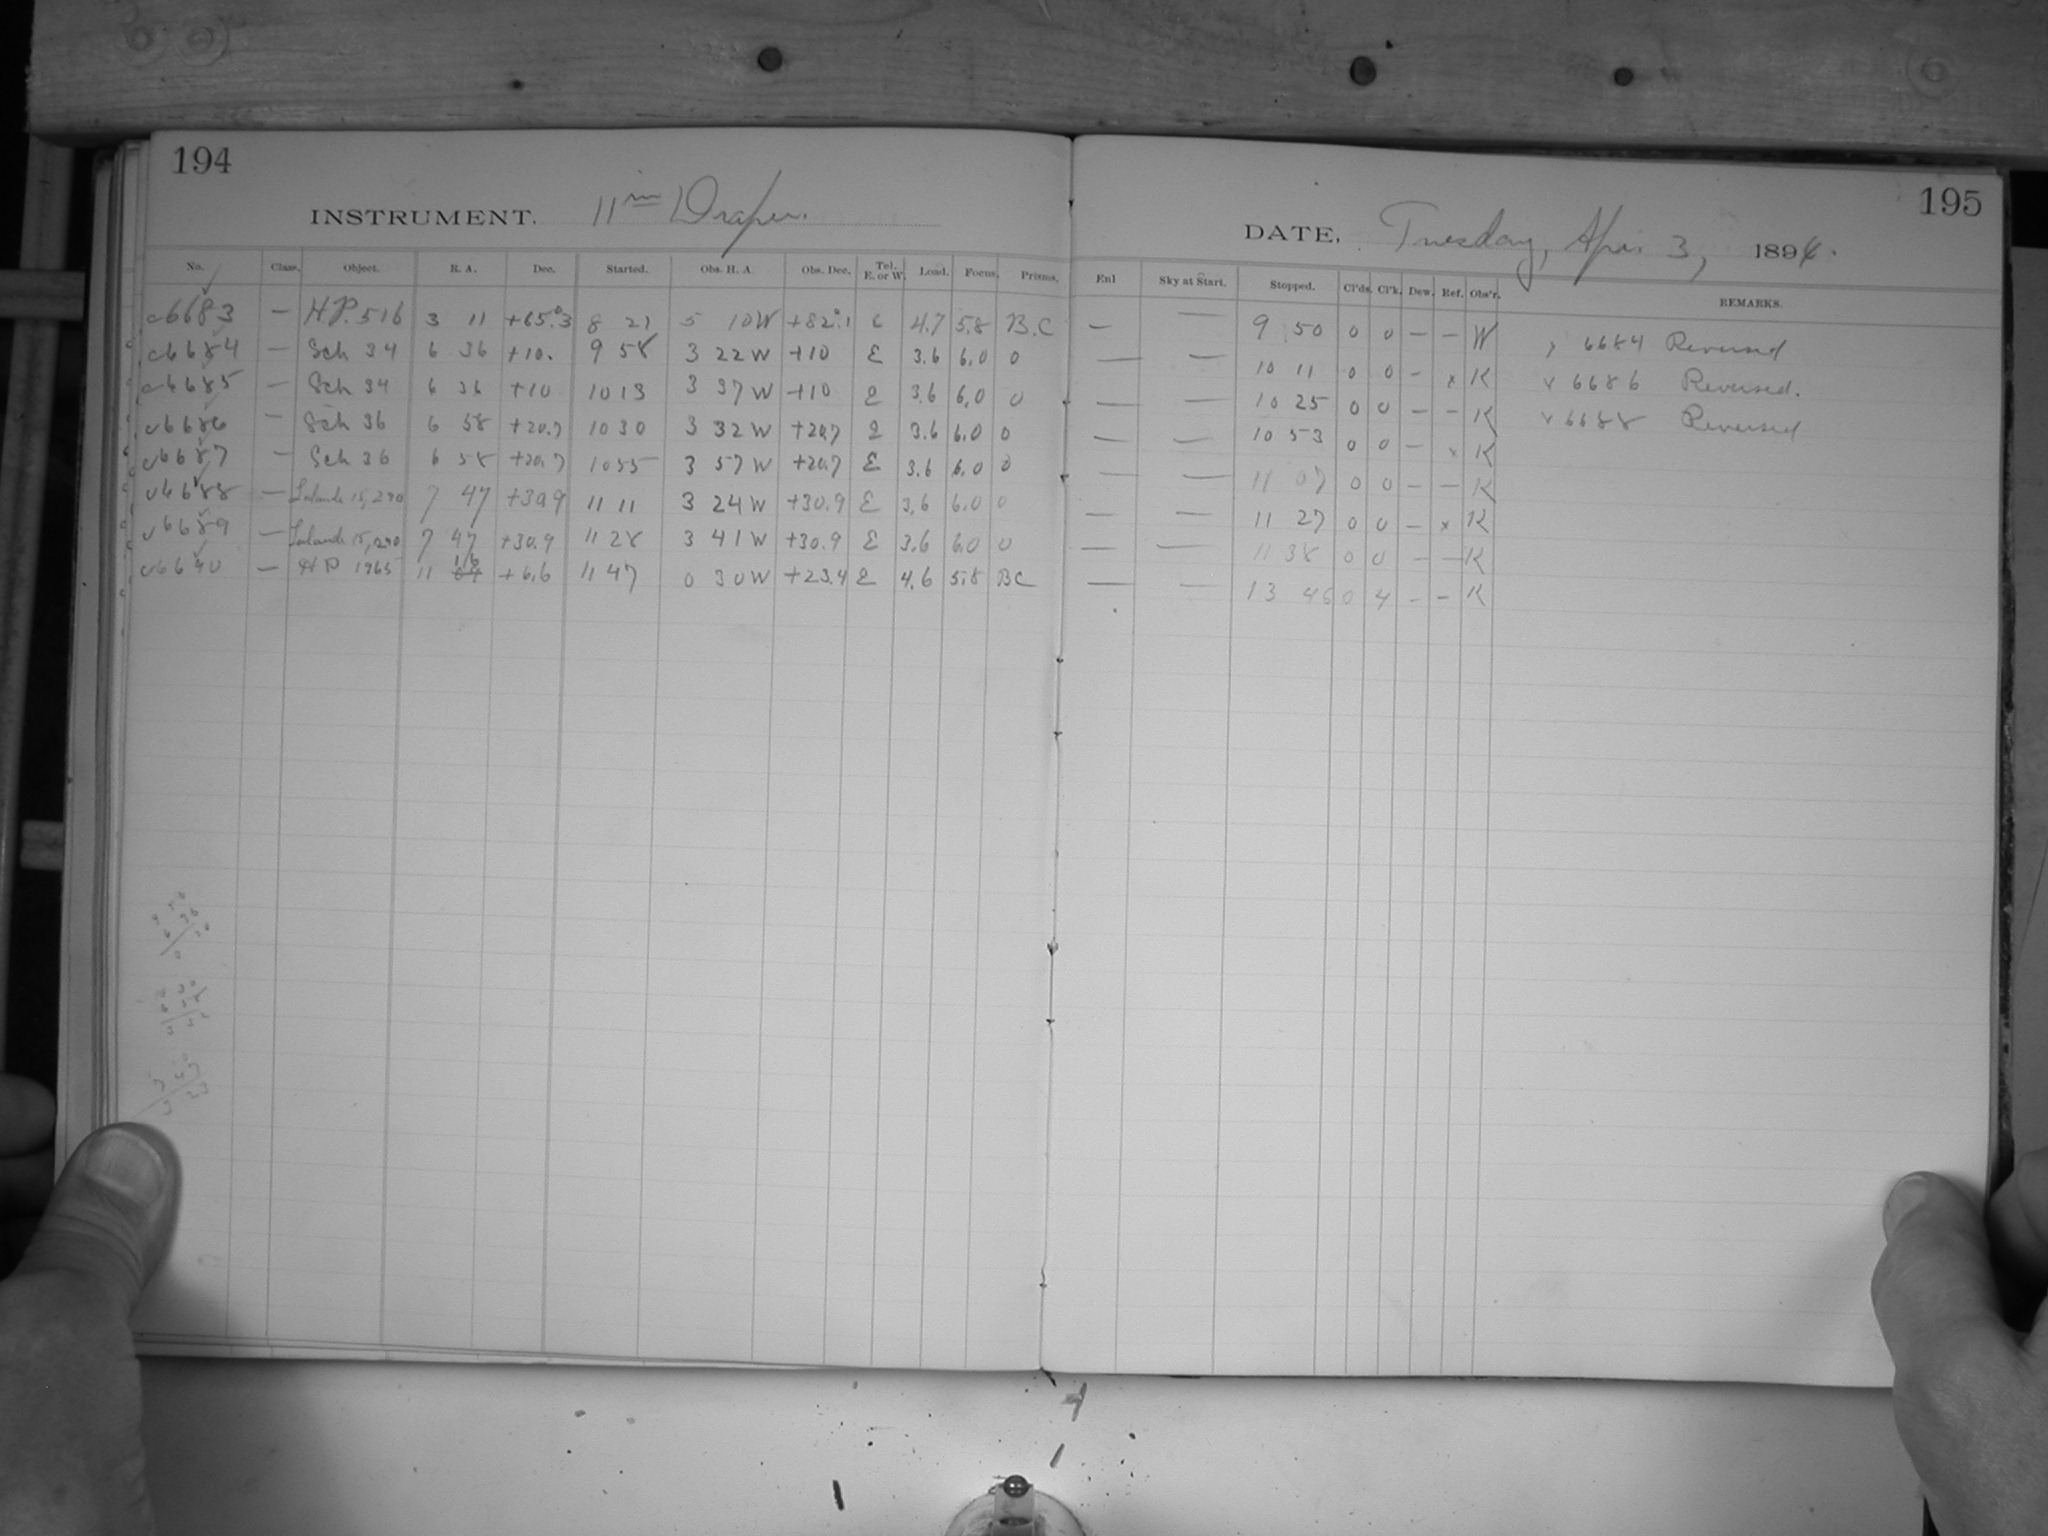 194
INSTRUMENT. 11 in Draper.
No. Class. Object. R. A. Dec. Started. Obs. H. A. Obs. Dec. Tel. E. or W. Load. Focus. Prisms.
c6683 — H.P. 516 3 11 +65.3 8 21 5 10W +82.1 E 4.7 5.8 B.C
c6684 — Sch 34 6 36 +10. 9 58 3 22 W +10 E 3.6 6.0 0
c6685 — Sch 34 6 36 +10 10 13 3 37 W +10 E 3.6 6.0 0
c6686 — Sch 36 6 58 +20.7 10 30 3 32 W +20.7 E 3.6 6.0 0
c6687 — Sch 36 6 58 +20.7 10 55 3 57 W +20.7 E 3.6 6.0 0
c6688 — Lalande 15,290 7 47 +30.9 11 11 3 24 W +30.9 E 3.6 6.0 0
c6689 — Lalande 15,290 7 47 +30.9 11 28 3 41 W +30.9 E 3.6 6.0 0
c6690 — H P 1965 11 16 +6.6 11 47 0 30 W +23.4 E 4.6 5.8 B C
195
DATE, Tuesday, Apr. 3, 1894.
Enl Sky at Start. Stopped. Cl'ds. Cl'k. Dew. Ref. Obs'r. REMARKS.
— — 9 50 0 0 — — W 6684 Reversed
— — 10 11 0 0 — x K x 6686 Reversed.
— — 10 25 0 0 — — K x 6688 Reversed
— — 10 53 0 0 — x K
— — 11 07 0 0 — — K
— — 11 27 0 0 — x K
— — 11 38 0 0 — — K
— — 13 46 0 4 — — K